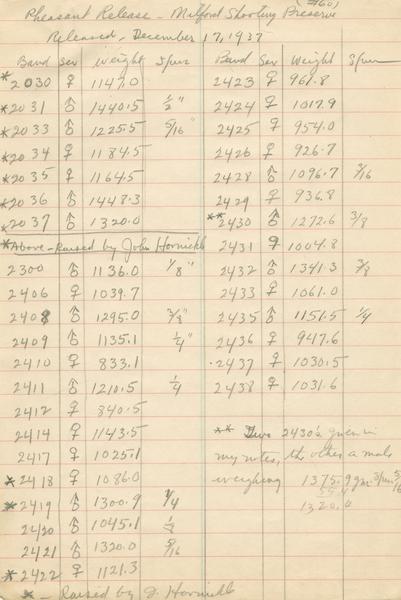 (#60)
Pheasant Release - Milford Shooting Preserve
Released, December 17, 1937
Band Sex Weight Spur
*2030 ♀ 1147.0
*2031 ♂ 1440.5 1/2"
*2033 ♂ 1225.5 5/16"
*2034 ♀ 1184.5
*2035 ♀ 1164.5
*2036 ♂ 1448.3
*2037 ♂ 1320.0
*Above - Raised by John Hornickle
2300 ♂ 1136.0 1/8"
2406 ♀ 1039.7
2408 ♂ 1295.0 3/8"
2409 ♂ 1135.1 1/4"
2410 ♀ 833.1
2411 ♂ 1210.5 1/4
2412 ♀ 840.5
2414 ♀ 1143.5
2417 ♀ 1025.1
*2418 ♀ 1086.0
*2419 ♂ 1300.9 1/4
2420 ♂ 1045.1
2421 ♂ 1320.0 5/16
*2422 ♀ 1121.3
* - Raised by J. Hornickle
Band Sex Weight Spur
2423 ♀ 961.8
2424 ♀ 1017.9
2425 ♀ 954.0
2426 ♀ 926.7
2428 ♂ 1096.7 3/16
2429 ♀ 936.8
**2430 ♂ 1272.6 3/8
2431 ♀ 1004.8
2432 ♂ 1341.3 3/8
2433 ♀ 1061.0
2435 ♂ 1151.5 1/4
2436 ♀ 947.6
2437 ♀ 1030.5
2438 ♀ 1031.6
** Two 2430's given in
my notes, the other a male
weighing 1375.9 gm spur 5/16
55.9
1320.0